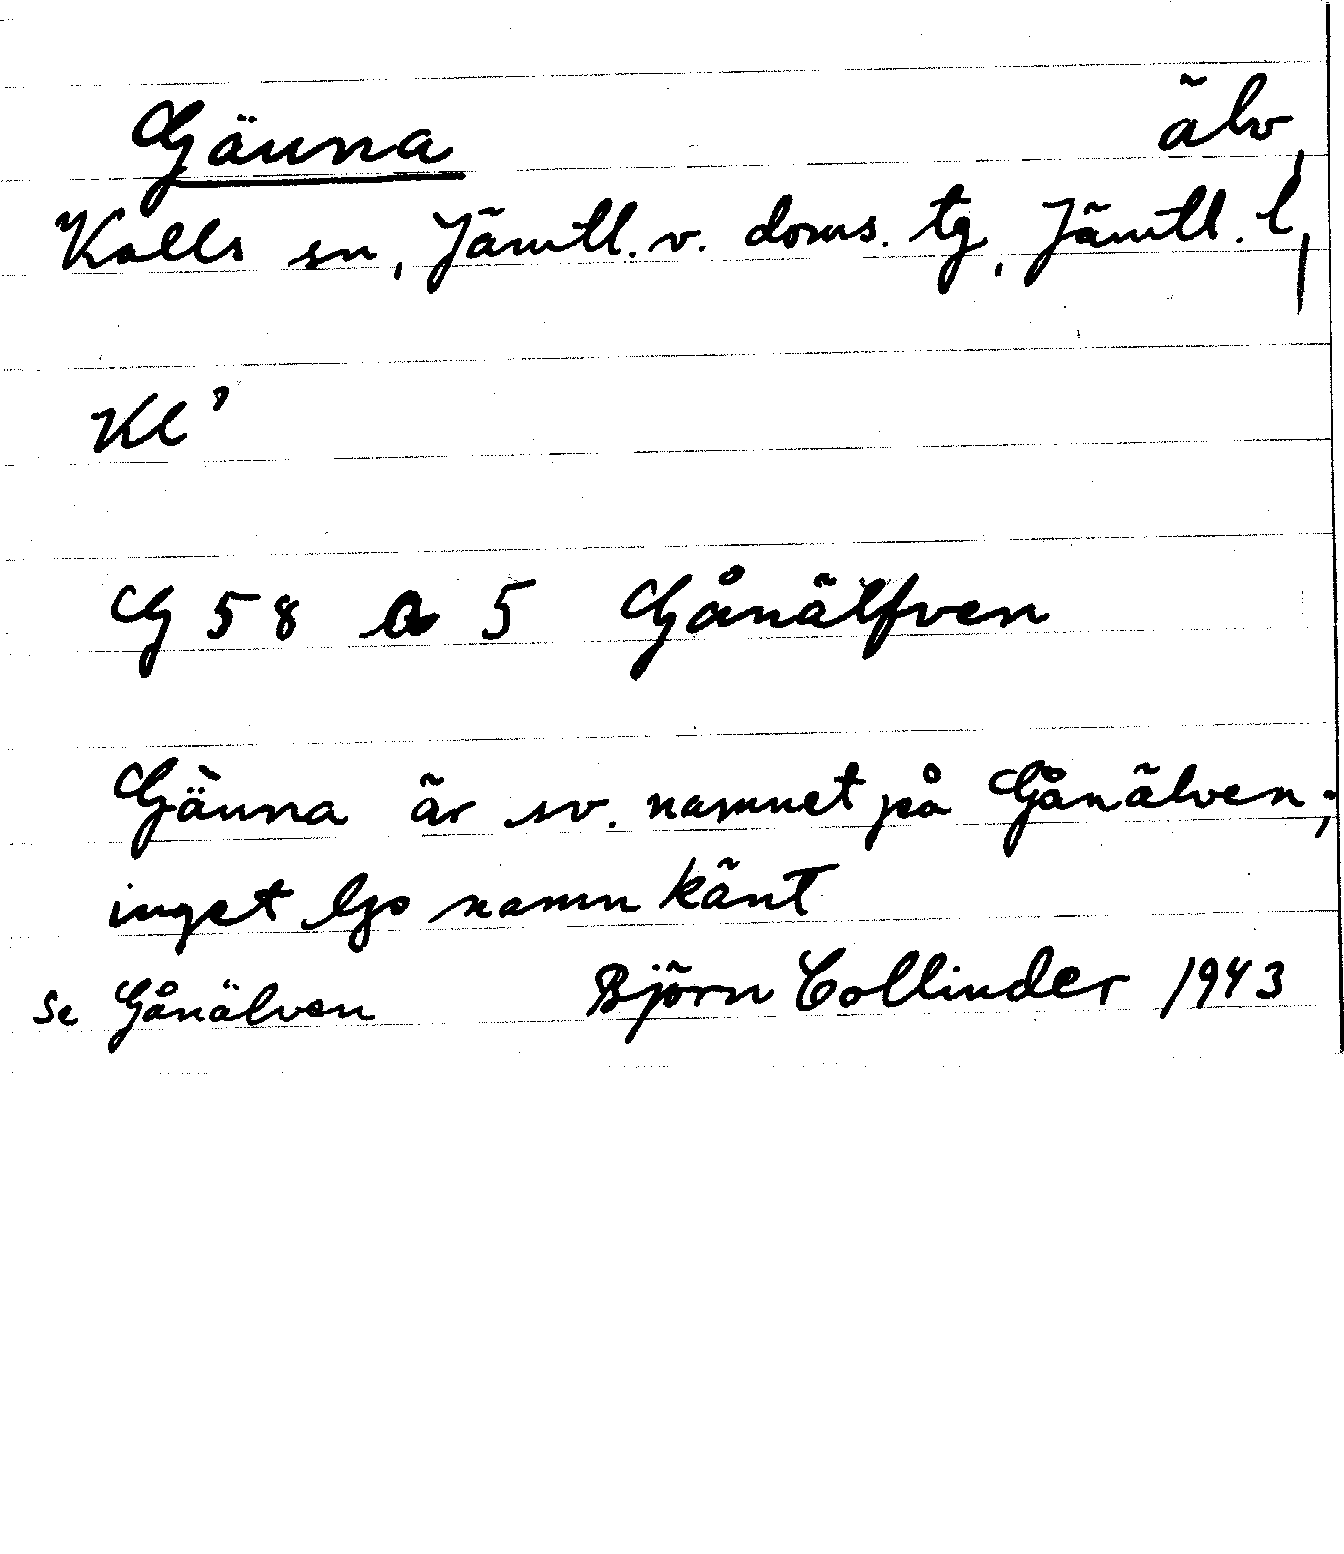 Gäunna älv
Kalls sn, Jämtl. v. doms. tg, Jämtl. l
Kl'
G 58 a 5 Gånälfven
Gäunna är sv. namnet på Gånälven;
inget lp namn känt
Se Gånälven Björn Collinder 1943